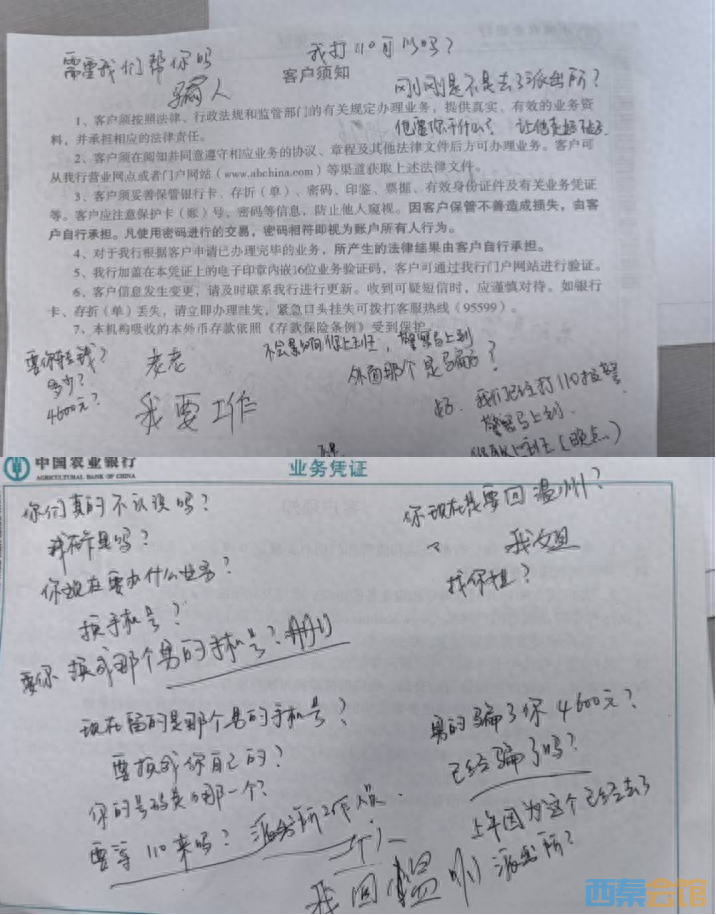 需要我们帮你吗
我打110可以吗？
骗人
客户须知
刚刚是不是去了派出所？
他要你干什么？
1、客户须按照法律、行政法规和监管部门的有关规定办理业务，提供真实、有效的业务资
料，并承担相应的法律责任。
2、客户须在阅知并同意遵守相应业务的协议、章程及其他法律文件后方可办理业务。客户可
从我行营业网点或者门户网站（www.abchina.com）等渠道获取上述法律文件。
3、客户须妥善保管银行卡、存折（单）、密码、印鉴、票据、有效身份证件及有关业务凭证
等。客户应注意保护卡（账）号、密码等信息，防止他人窥视。因客户保管不善造成损失，由客
户自行承担。凡使用密码进行的交易，密码相符即视为账户所有人行为。
4、对于我行根据客户申请已办理完毕的业务，所产生的法律结果由客户自行承担。
5、我行加盖在本凭证上的电子印章内嵌16位业务验证码，客户可通过我行门户网站进行验证。
6、客户信息发生变更，请及时联系我行进行更新。收到可疑短信时，应谨慎对待。如银行
卡、存折（单）丢失，请立即办理挂失，紧急口头挂失可拨打客服热线（95599）。
7、本机构吸收的本外币存款依照《存款保险条例》受到保护。
要你转钱？
多少？
4600元？
老老
我要工作
不会影响你上班，警察马上到
外面那个是骗子？
好，我们已经打110报警
警察马上到
中国农业银行
AGRICULTURAL BANK OF CHINA
业务凭证
你们真的不认识吗？
你现在要办什么业务？
换手机号？
要你换成那个男的手机号？
现在留的是那个男的手机号？
要换成你自己的？
你的号码是哪一个？
要等110来吗？派出所工作人员
一个人
我回温州
你现在是要回温州？
我姐
找你姐？
男的骗了你4600元？
已经骗了吗？
上午因为这个已经去了
派出所？
西秦会馆